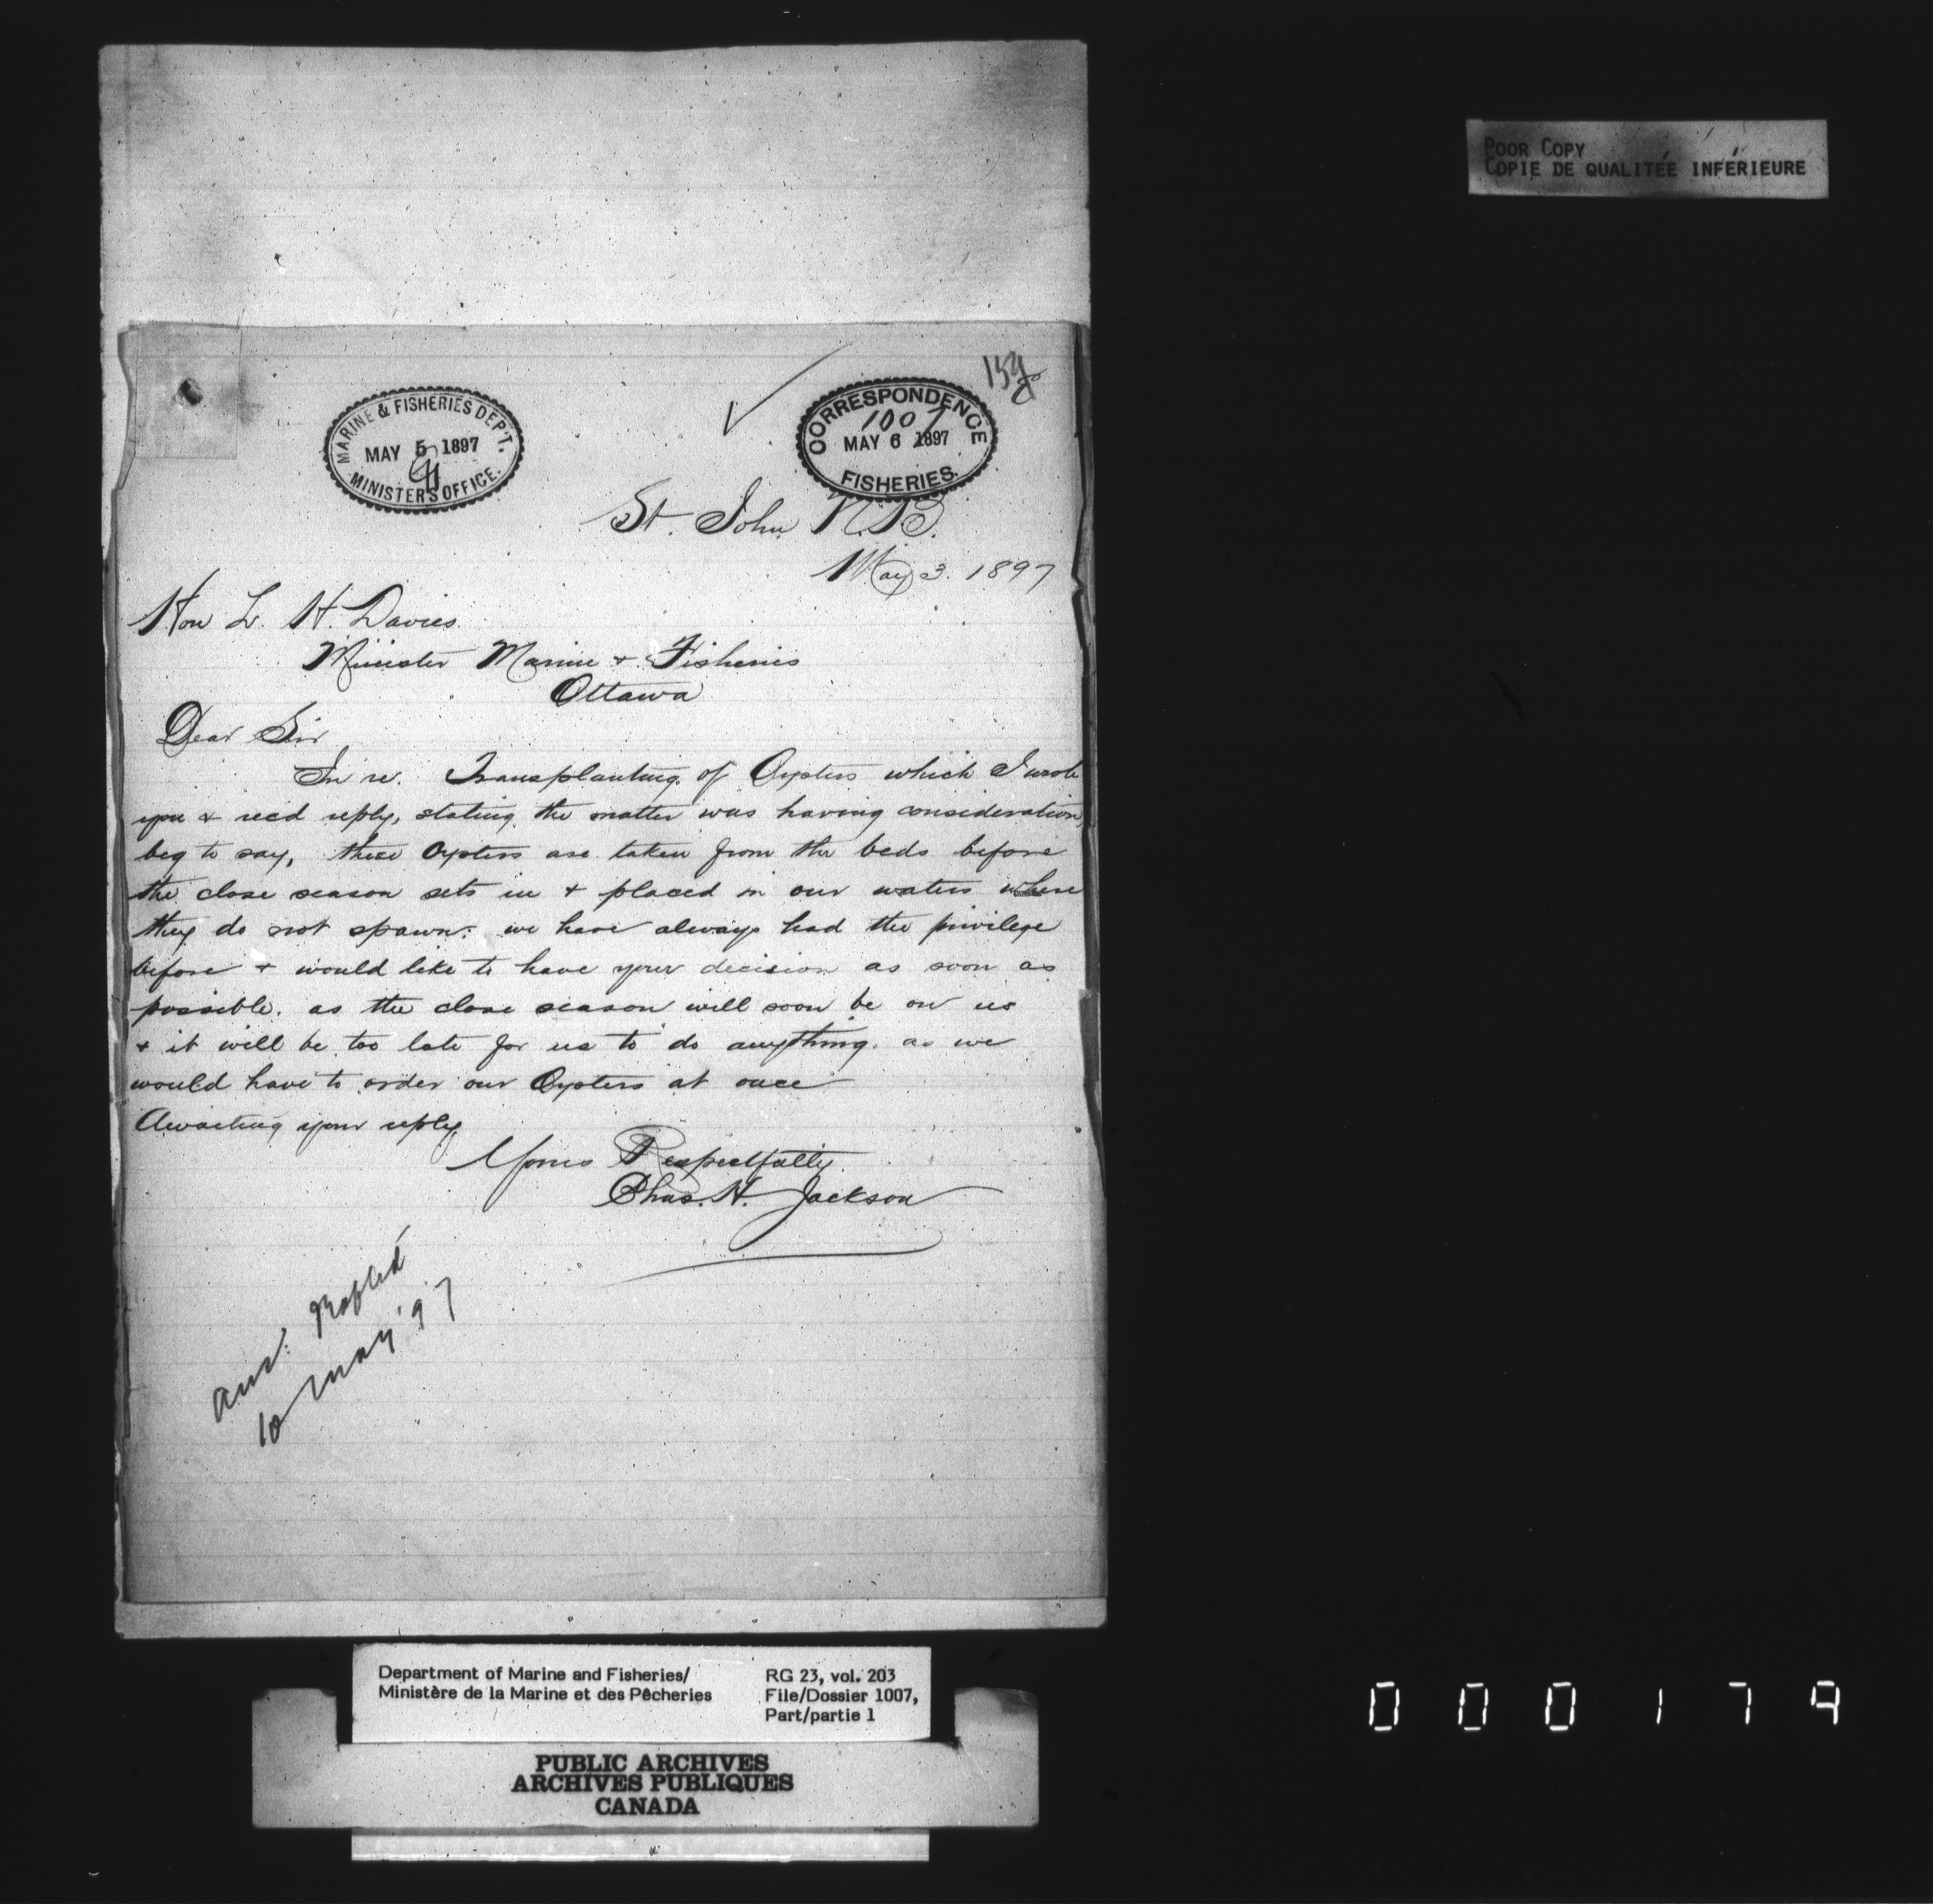 POOR COPY
COPIE DE QUALITÉE INFÉRIEURE
MARINE & FISHERIES DEP'T.
MAY 5 1897
MINISTER'S OFFICE.
CORRESPONDENCE
1007
MAY 6 1897
FISHERIES.
St. John N.B.
May 3. 1897
Hon L. H. Davies
Minister Marine & Fisheries
Ottawa
Dear Sir
In re. Transplanting of Oysters which I wrote
you & recd reply, stating the matter was having consideration,
beg to say, these Oysters are taken from the beds before
the close season sets in & placed in our waters where
they do not spawn. we have always had the privilege
before & would like to have your decision as soon as
possible. as the close season will soon be on us
& it will be too late for us to do anything. as we
would have to order our Oysters at once
Awaiting your reply
Yours Respectfully.
Chas. H. Jackson
ans.
10 May '97
Department of Marine and Fisheries/
Ministère de la Marine et des Pêcheries
RG 23, vol. 203
File/Dossier 1007,
Part/partie 1
PUBLIC ARCHIVES
ARCHIVES PUBLIQUES
CANADA
000179